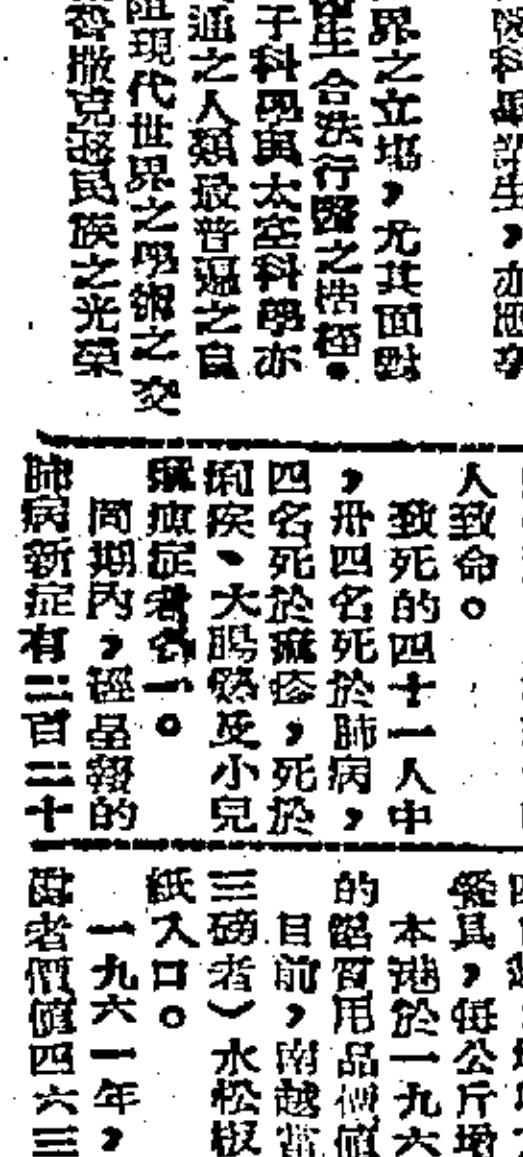 科學
生，亦
界之立場，尤其面對
生合法行醫之桎梏。
子科學與太空科學亦
通之人類最普遍之自
阻現代世界之學術之交
撒克遜民族之光榮
人致命。
致死的四十一人中
，卅四名死於肺病，
四名死於痲疹，死於
痢疾、大腸熱及小兒
痲痺症者各一。
周期內，經呈報的
肺病新症有二百二十
餐具，每公斤增
本港於一九六
的 用品價值
目前，南越當
三磅者）水松板
紙入口。
一九六一年，
者價值四六三